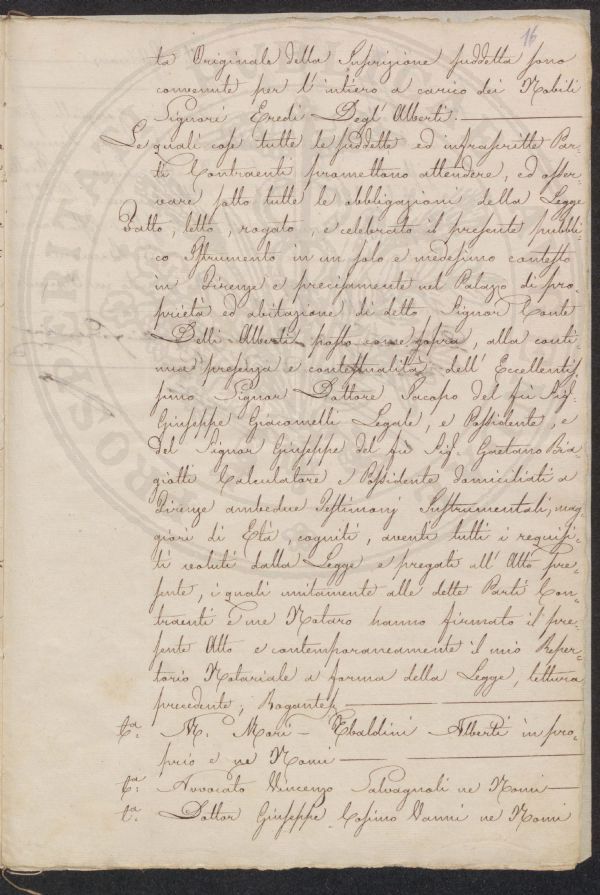 16
ta Originale della Suprizione suddetta sono
convenute per l'intiero a carico dei Nobili
Signori Eredi Degl'Alberti.
Le quali cose tutte le suddette ed infrascritte Par-
ti Contraenti promettano attendere, ed osser-
vare sotto tutte le obbligazioni della Legge
Fatto, letto, rogato, e celebrato il presente pubbli-
co Istrumento in un solo e medesimo contesto
in Firenze e precisamente nel Palazzo di pro-
prietà ed abitazione di detto Signor Conte
Delli Alberti posto come sopra, alla conti-
nua presenza e contestualità dell'Eccellentis-
simo Signor Dottore Jacopo del fù Sig.
Giuseppe Giacomelli Legale, e Possidente, e
del Signor Giuseppe del fù Sig. Gaetano Bia-
giotti Calculatore e Possidente domiciliati a
Firenze ambedue Testimonj Instrumentali, mag-
giori di Età, cogniti, aventi tutti i requisi-
ti voluti dalla Legge e pregati all'Atto pre-
sente, i quali unitamente alle dette Parti Con-
traenti e me Notaro hanno firmato il pre-
sente Atto e contemporaneamente il mio Reper-
torio Notariale a forma della Legge, lettura
precedente, Rogante
C.a N. Mari-Tebaldini Alberti in pro-
prio e ne Nomi
C.a Avvocato Vincenzo Salvagnoli ne Nomi
C.a Dottor Giuseppe Cosimo Vanni ne Nomi
PROSPERITÀ